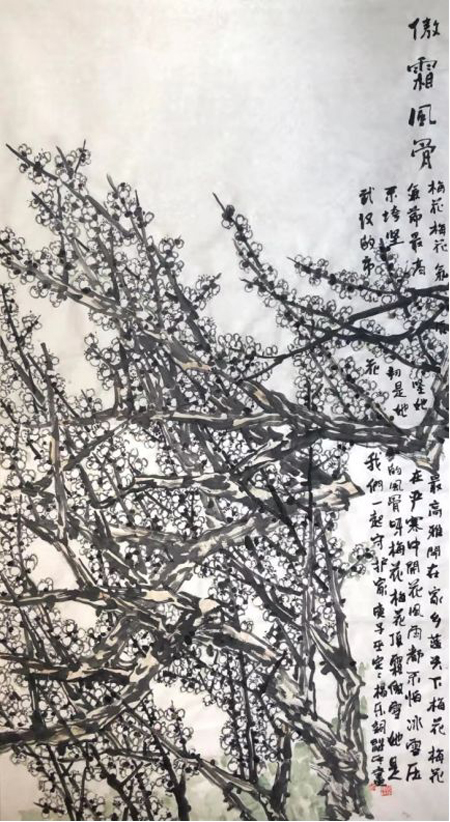 傲霜風骨
梅花梅花 最高雅開在家乡蓝天下梅花梅花
最有 坚她 在严寒中開花风雨都不怕冰雪压
不垮坚 韧是她 的風骨呀梅花梅花顶霜傲雪她是
武汉的市 花 我們一起守护家 庚子